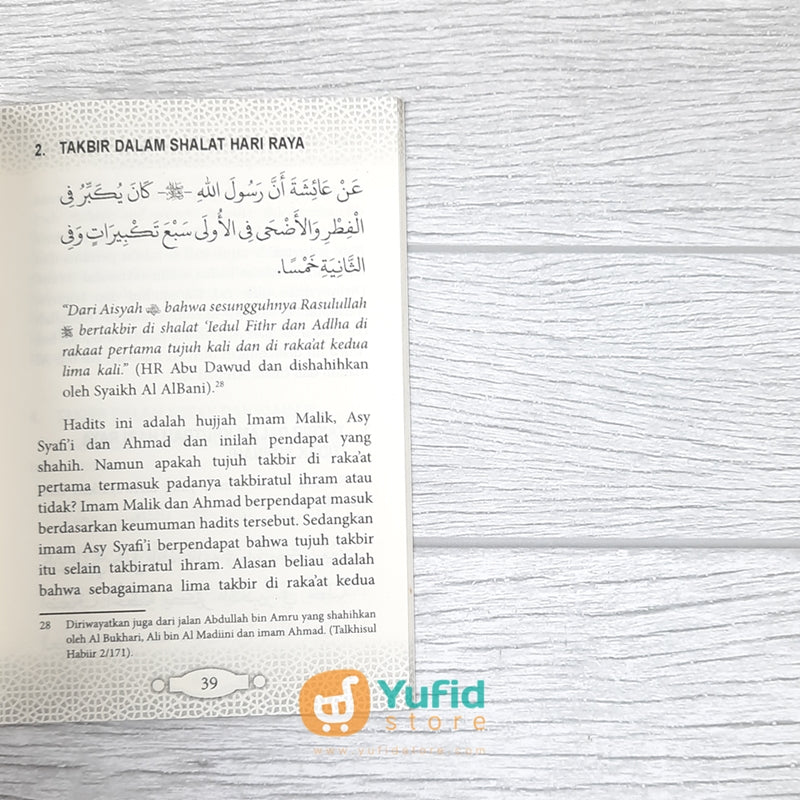 2. TAKBIR DALAM SHALAT HARI RAYA
عَنْ عَائِشَةَ أَنَّ رَسُولَ اللهِ -ﷺ- كَانَ يُكَبِّرُ فِى
الْفِطْرِ وَالأَضْحَى فِى الأُولَى سَبْعَ تَكْبِيرَاتٍ وَفِى
الثَّانِيَةِ خَمْسًا.
“Dari Aisyah bahwa sesungguhnya Rasulullah
ﷺ bertakbir di shalat ‘Iedul Fithr dan Adlha di
rakaat pertama tujuh kali dan di raka’at kedua
lima kali.” (HR Abu Dawud dan dishahihkan
oleh Syaikh Al AlBani).²⁸
Hadits ini adalah hujjah Imam Malik, Asy
Syafi’i dan Ahmad dan inilah pendapat yang
shahih. Namun apakah tujuh takbir di raka’at
pertama termasuk padanya takbiratul ihram atau
tidak? Imam Malik dan Ahmad berpendapat masuk
berdasarkan keumuman hadits tersebut. Sedangkan
imam Asy Syafi’i berpendapat bahwa tujuh takbir
itu selain takbiratul ihram. Alasan beliau adalah
bahwa sebagaimana lima takbir di raka’at kedua
28 Diriwayatkan juga dari jalan Abdullah bin Amru yang shahihkan
oleh Al Bukhari, Ali bin Al Madiini dan imam Ahmad. (Talkhisul
Habiir 2/171).
39
Yufid
store
www.yufidstore.com